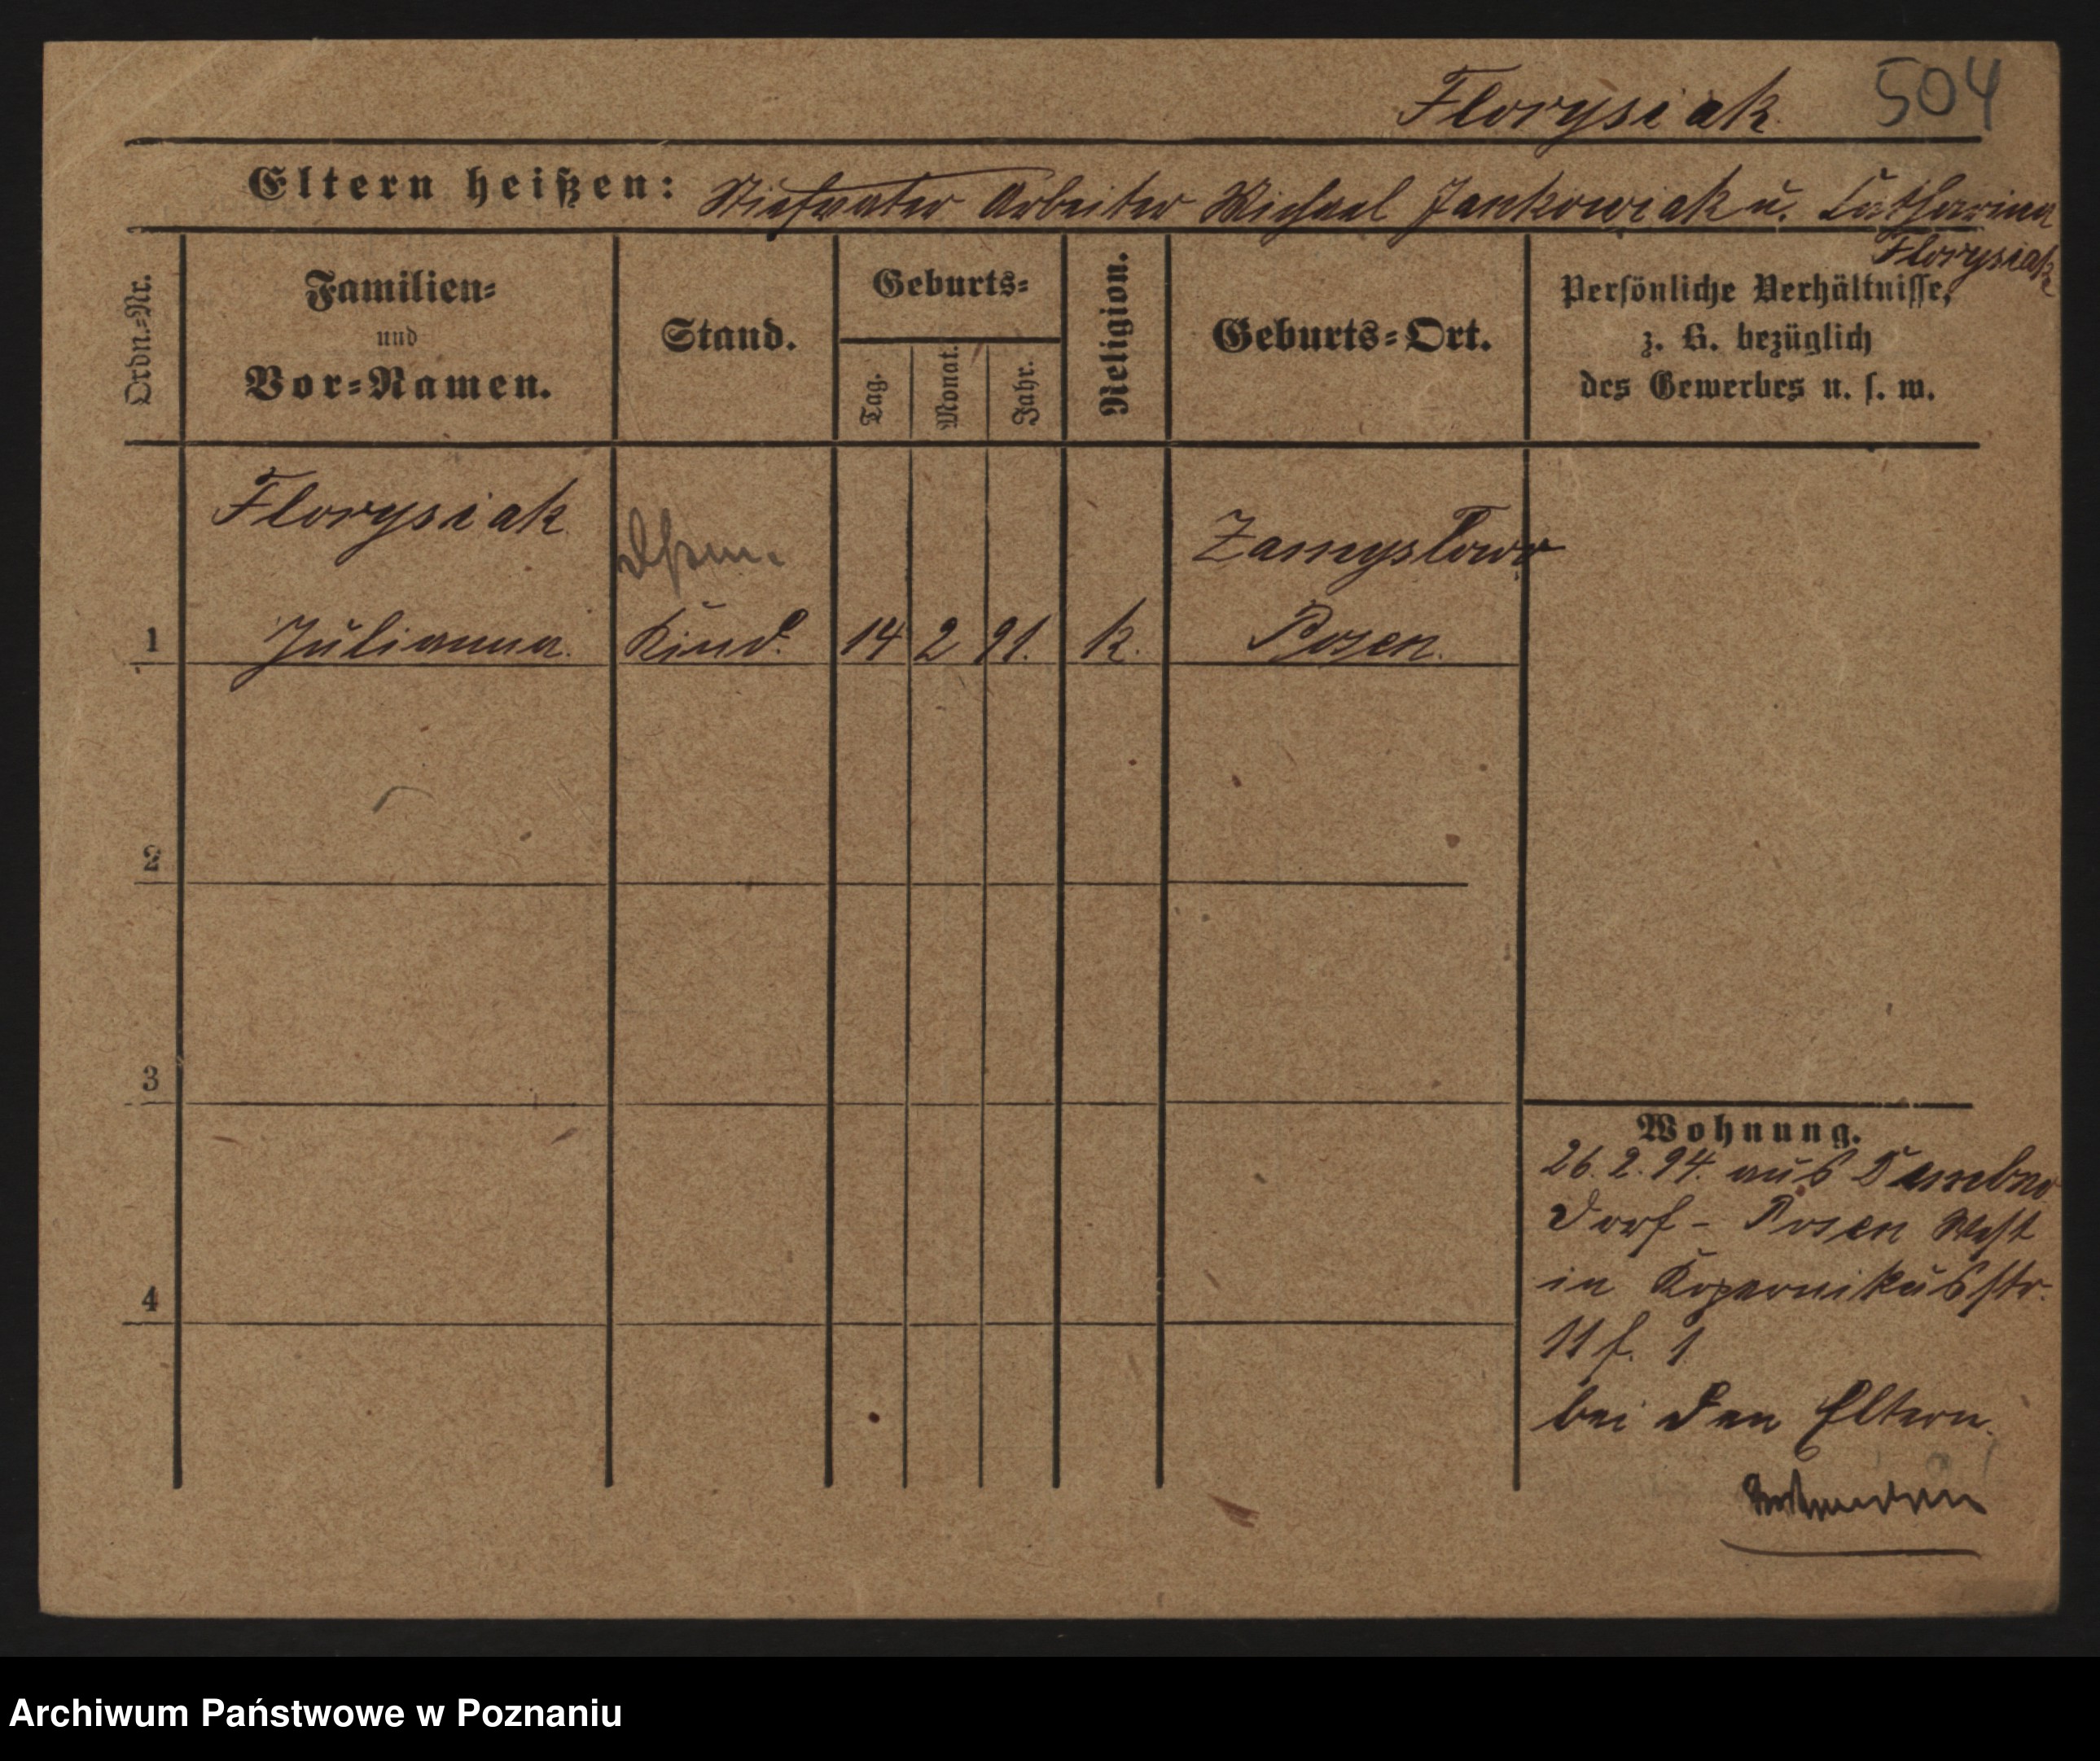 Florysiak 504
Eltern heißen: Stiefvater Arbeiter Michael Jankowiak u. Catharina
Florysiak
Ordn.-Nr.
Familien-
und
Vor-Namen.
Stand.
Geburts-
Tag.
Monat.
Jahr.
Religion.
Geburts-Ort.
Persönliche Verhältnisse,
z. B. bezüglich
des Gewerbes u. s. w.
Florysiak Zamysłowo
1 Julianna. Kind. 14 2 91. k. Posen.
2
3
4
Wohnung.
26. 2. 94. aus
Dorf - Posen West
in Kopernikusstr.
11 f. 1
bei den Eltern.
Archiwum Państwowe w Poznaniu